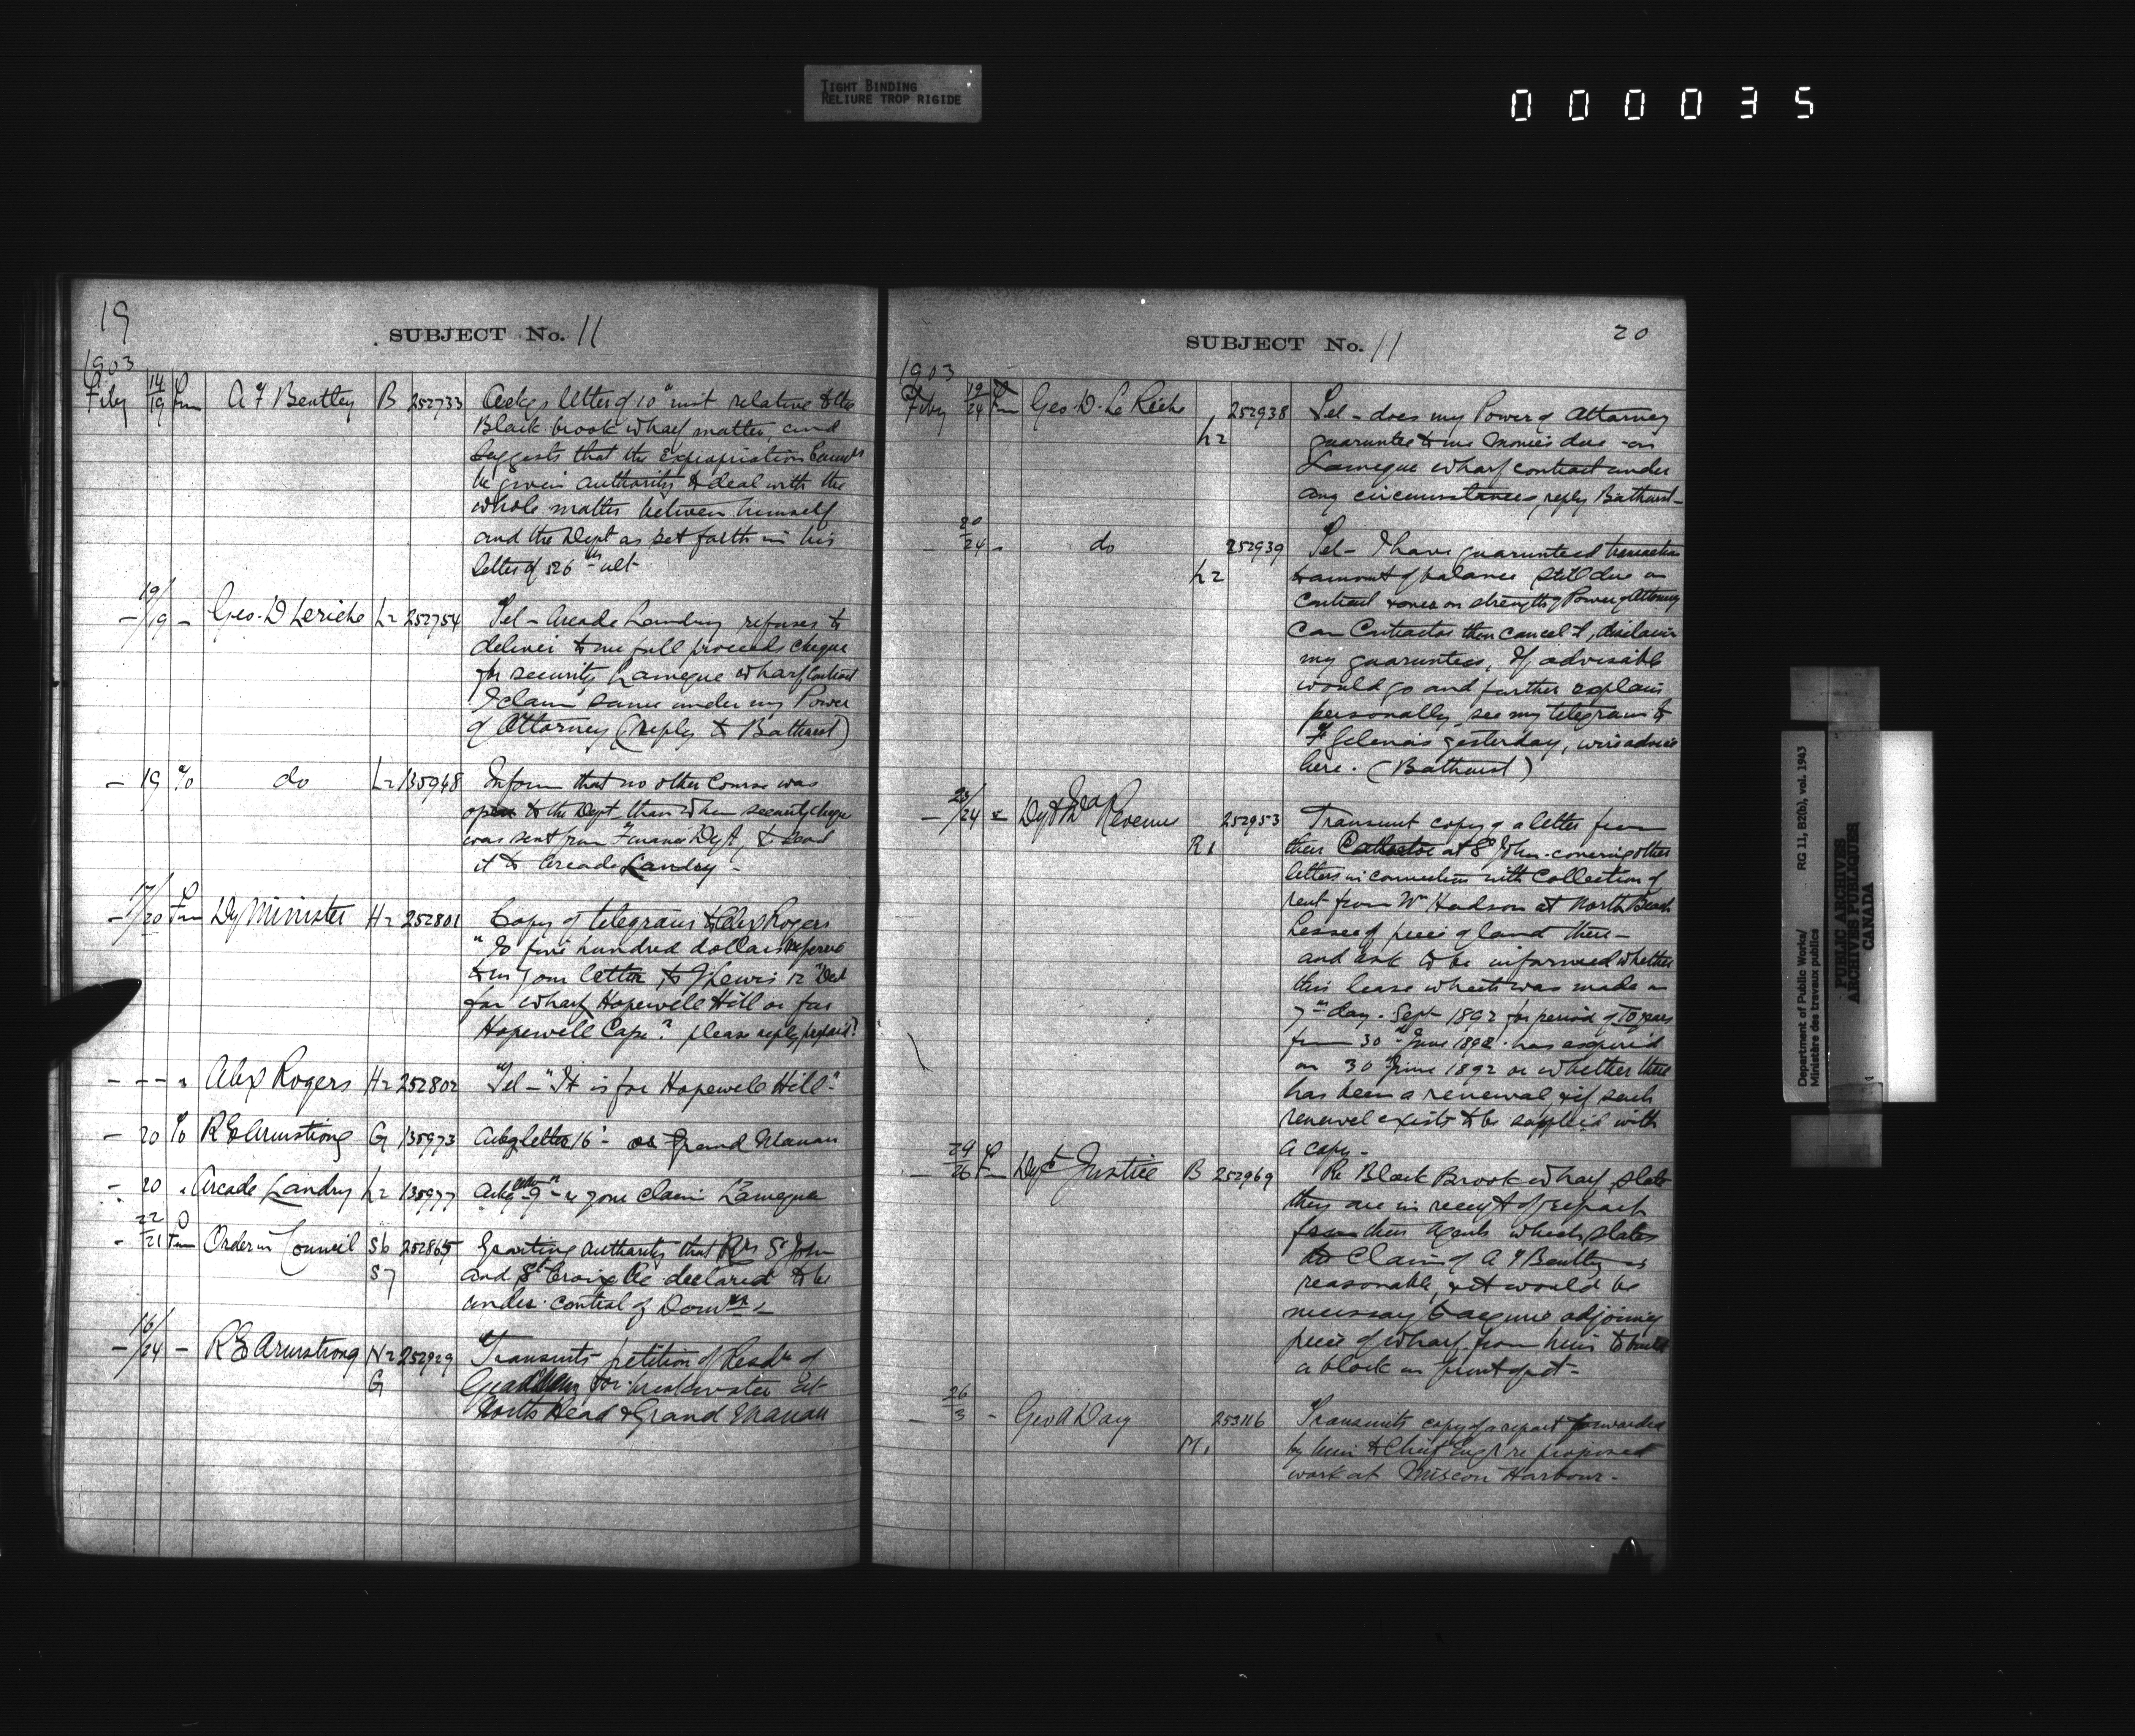 TIGHT BINDING
RELIURE TROP RIGIDE
000035
19
SUBJECT No. 11
1903
Feby 14/19 Fm A F Bentley B 252733 Ackgs letter of 10" inst relative to the
Black brook wharf matter, and
suggests that the Expropriation
be given authority to deal with the
whole matter between himself
and the Dept as set forth in his
letter of 26th ult.
- 19/19 - Geo. D Leriche L2 252754 Tel - Arcade Landry refuses to
deliver to me full proceeds cheque
for security Lameque wharf contract
I claim same under my Power
of Attorney (reply to Bathurst)
- 19 To do L2 135948 Inform that no other course was
open to the Dept than when security cheque
was sent from Finance Dept, to send
it to Arcade Landry -
- 17/20 Fm Dy Minister H2 252801 Copy of telegram to Alex Rogers
"Is five hundred dollars referred
to in your letter to Lewis
for wharf Hopewell Hill or for
Hopewell Cape? please reply prepaid"
- - - " Alex Rogers H2 252802 Tel - "It is for Hopewell Hill"
- 20 To R E Armstrong G 135973 Ackg letter 16" - Grand Manan
- 20 " Arcade Landry L2 135977 Ackg 9" re your claim Lameque
- 22/21 Fm Order in Council S6 252865 Granting authority that Rvs St John
S7 and St Croix be declared to be
under control of Domn
- 16/24 - R E Armstrong N2 252929 Transmits petition of Resdts of
G for breakwater at
North Head Grand Manan
SUBJECT No. 11
20
1903
Feby 19/24 Fm Geo. D. Le Riche L2 252938 Tel - does my Power of Attorney
guarantee to me monies due on
Lameque wharf contract under
any circumstances, reply Bathurst -
- 20/24 - do L2 252939 Tel - I have guaranteed transaction
to amount of balance still due on
contract on strength of Power of Attorney
can Contractor then cancel it, disclaim
my guarantees, If advisable
would go and further explain
personally, see my telegram to
Gelenais yesterday, wire advice
here. (Bathurst)
- 23/24 - Dept Revenue R1 252953 Transmit copy of a letter from
their Collector at St John covering other
letters in connection with Collection of
rent from Wm Hudson at North Beach
Lessee of piece of land there -
and ask to be informed whether
this lease which was made on
7th day Sept 1892 for period of 10 years
from 30th June 1892 has expired
on 30th June 1892 or whether there
has been a renewal, if such
renewel exists to be supplied with
a copy -
- 24/26 Fm Dept Justice B 252969 Re Black Brook wharf, state
they are in receipt of report
from their Agents which states
Claim of A F Bentley is
reasonable, & it would be
necessary to acquire adjoining
piece of wharf from him to build
a block in front of it -
- 26/3 - Geo A Day M1 253116 Transmits copy of report forwarded
by him to Chief Engr re proposed
work at Miscou Harbour -
Department of Public Works/
Ministère des travaux publics
RG 11, B2(b), vol. 1943
PUBLIC ARCHIVES
ARCHIVES PUBLIQUES
CANADA